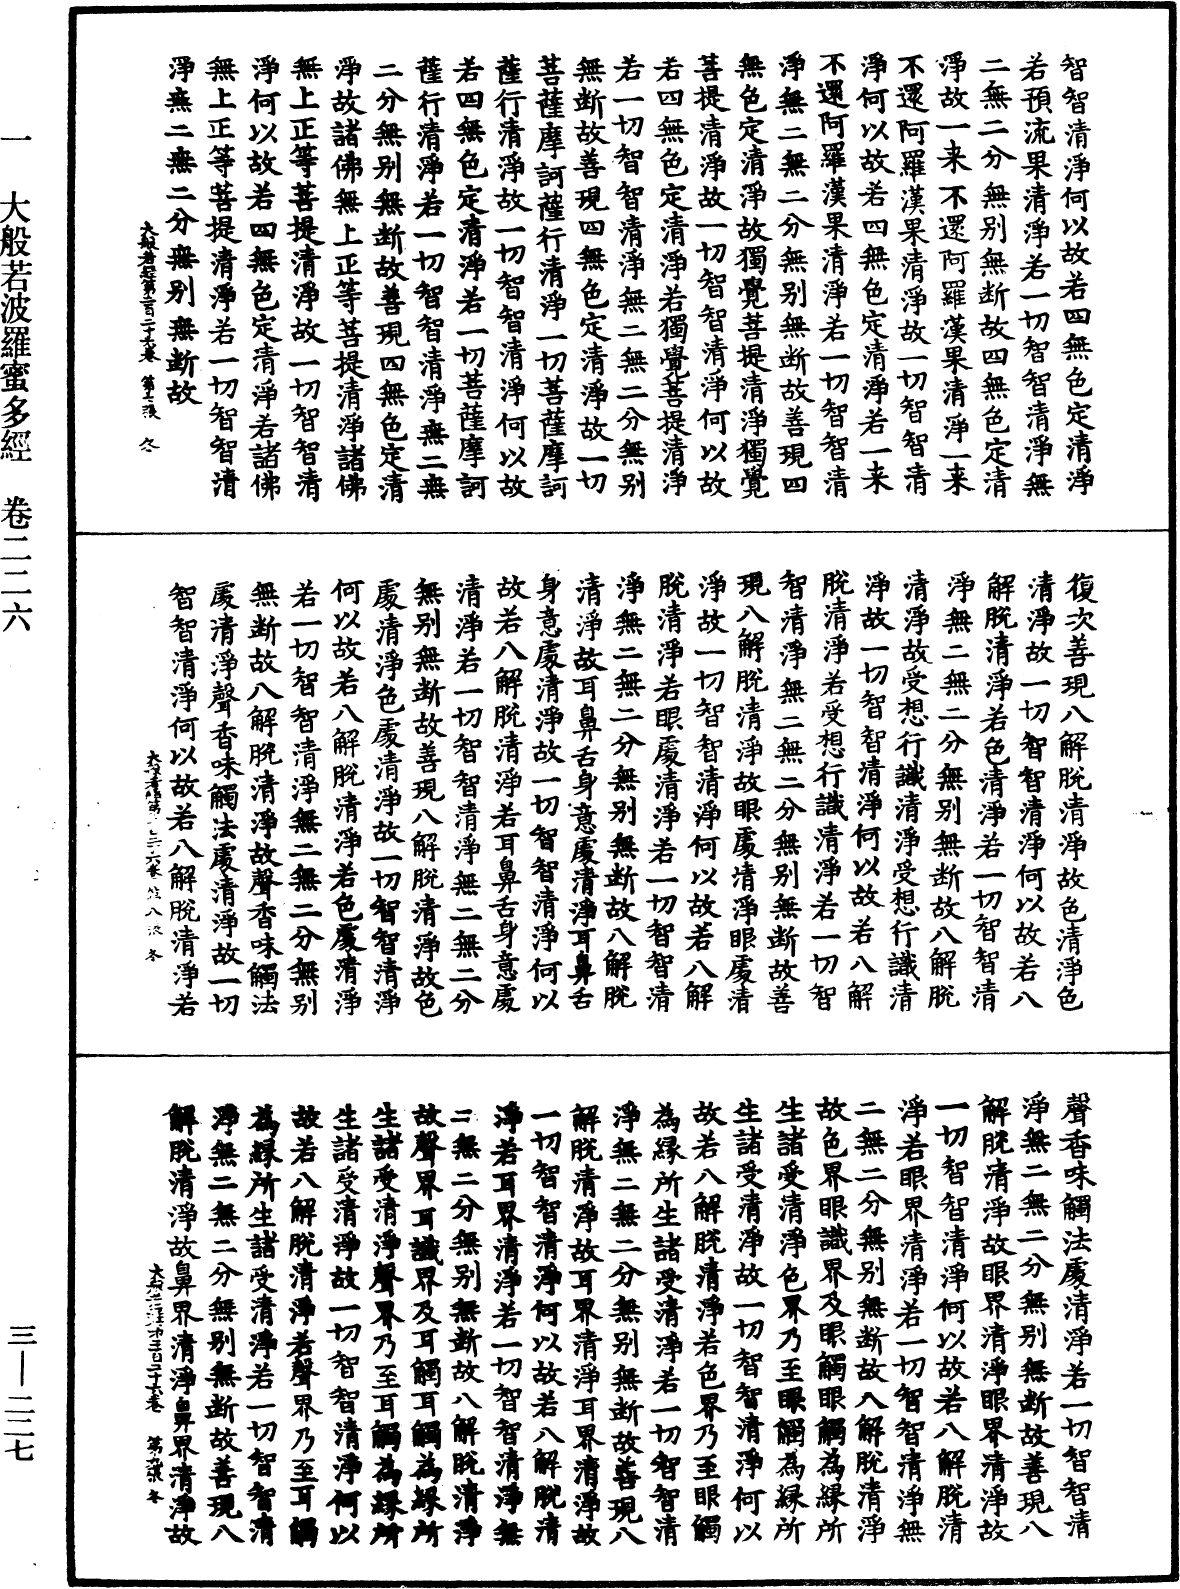 智智清淨何以故若四無色定清淨
若預流果清淨若一切智智清淨無
二無二分無別無斷故四無色定清
淨故一来不還阿羅漢果清淨一来
不還阿羅漢果清淨故一切智智清
淨何以故若四無色定清淨若一来
不還阿羅漢果清淨若一切智智清
淨無二無二分無別無斷故善現四
無色定清淨故獨覺菩提清淨獨覺
菩提清淨故一切智智清淨何以故
若四無色定清淨若獨覺菩提清淨
若一切智智清淨無二無二分無別
無斷故善現四無色定清淨故一切
菩薩摩訶薩行清淨一切菩薩摩訶
薩行清淨故一切智智清淨何以故
若四無色定清淨若一切菩薩摩訶
薩行清淨若一切智智清淨無二無
二分無別無斷故善現四無色定清
淨故諸佛無上正等菩提清淨諸佛
無上正等菩提清淨故一切智智清
淨何以故若四無色定清淨若諸佛
無上正等菩提清淨若一切智智清
淨無二無二分無別無斷故
復次善現八解脫清淨故色清淨色
清淨故一切智智清淨何以故若八
解脫清淨若色清淨若一切智智清
淨無二無二分無別無斷故八解脫
清淨故受想行識清淨受想行識清
淨故一切智智清淨何以故若八解
脫清淨若受想行識清淨若一切智
智清淨無二無二分無別無斷故善
現八解脫清淨故眼處清淨眼處清
淨故一切智智清淨何以故若八解
脫清淨若眼處清淨若一切智智清
淨無二無二分無別無斷故八解脫
清淨故耳鼻舌身意處清淨耳鼻舌
身意處清淨故一切智智清淨何以
故若八解脫清淨若耳鼻舌身意處
清淨若一切智智清淨無二無二分
無別無斷故善現八解脫清淨故色
處清淨色處清淨故一切智智清淨
何以故若八解脫清淨若色處清淨
若一切智智清淨無二無二分無別
無斷故八解脫清淨故聲香味觸法
處清淨聲香味觸法處清淨故一切
智智清淨何以故若八解脫清淨若
聲香味觸法處清淨若一切智智清
淨無二無二分無別無斷故善現八
解脫清淨故眼界清淨眼界清淨故
一切智智清淨何以故若八解脫清
淨若眼界清淨若一切智智清淨無
二無二分無別無斷故八解脫清淨
故色界眼識界及眼觸眼觸為緣所
生諸受清淨色界乃至眼觸為緣所
生諸受清淨故一切智智清淨何以
故若八解脫清淨若色界乃至眼觸
為緣所生諸受清淨若一切智智清
淨無二無二分無別無斷故善現八
解脫清淨故耳界清淨耳界清淨故
一切智智清淨何以故若八解脫清
淨若耳界清淨若一切智智清淨無
二無二分無別無斷故八解脫清淨
故聲界耳識界及耳觸耳觸為緣所
生諸受清淨聲界乃至耳觸為緣所
生諸受清淨故一切智智清淨何以
故若八解脫清淨若聲界乃至耳觸
為緣所生諸受清淨若一切智智清
淨無二無二分無別無斷故善現八
解脫清淨故鼻界清淨鼻界清淨故
一 大般若波羅蜜多經 卷二二六
三—二二七